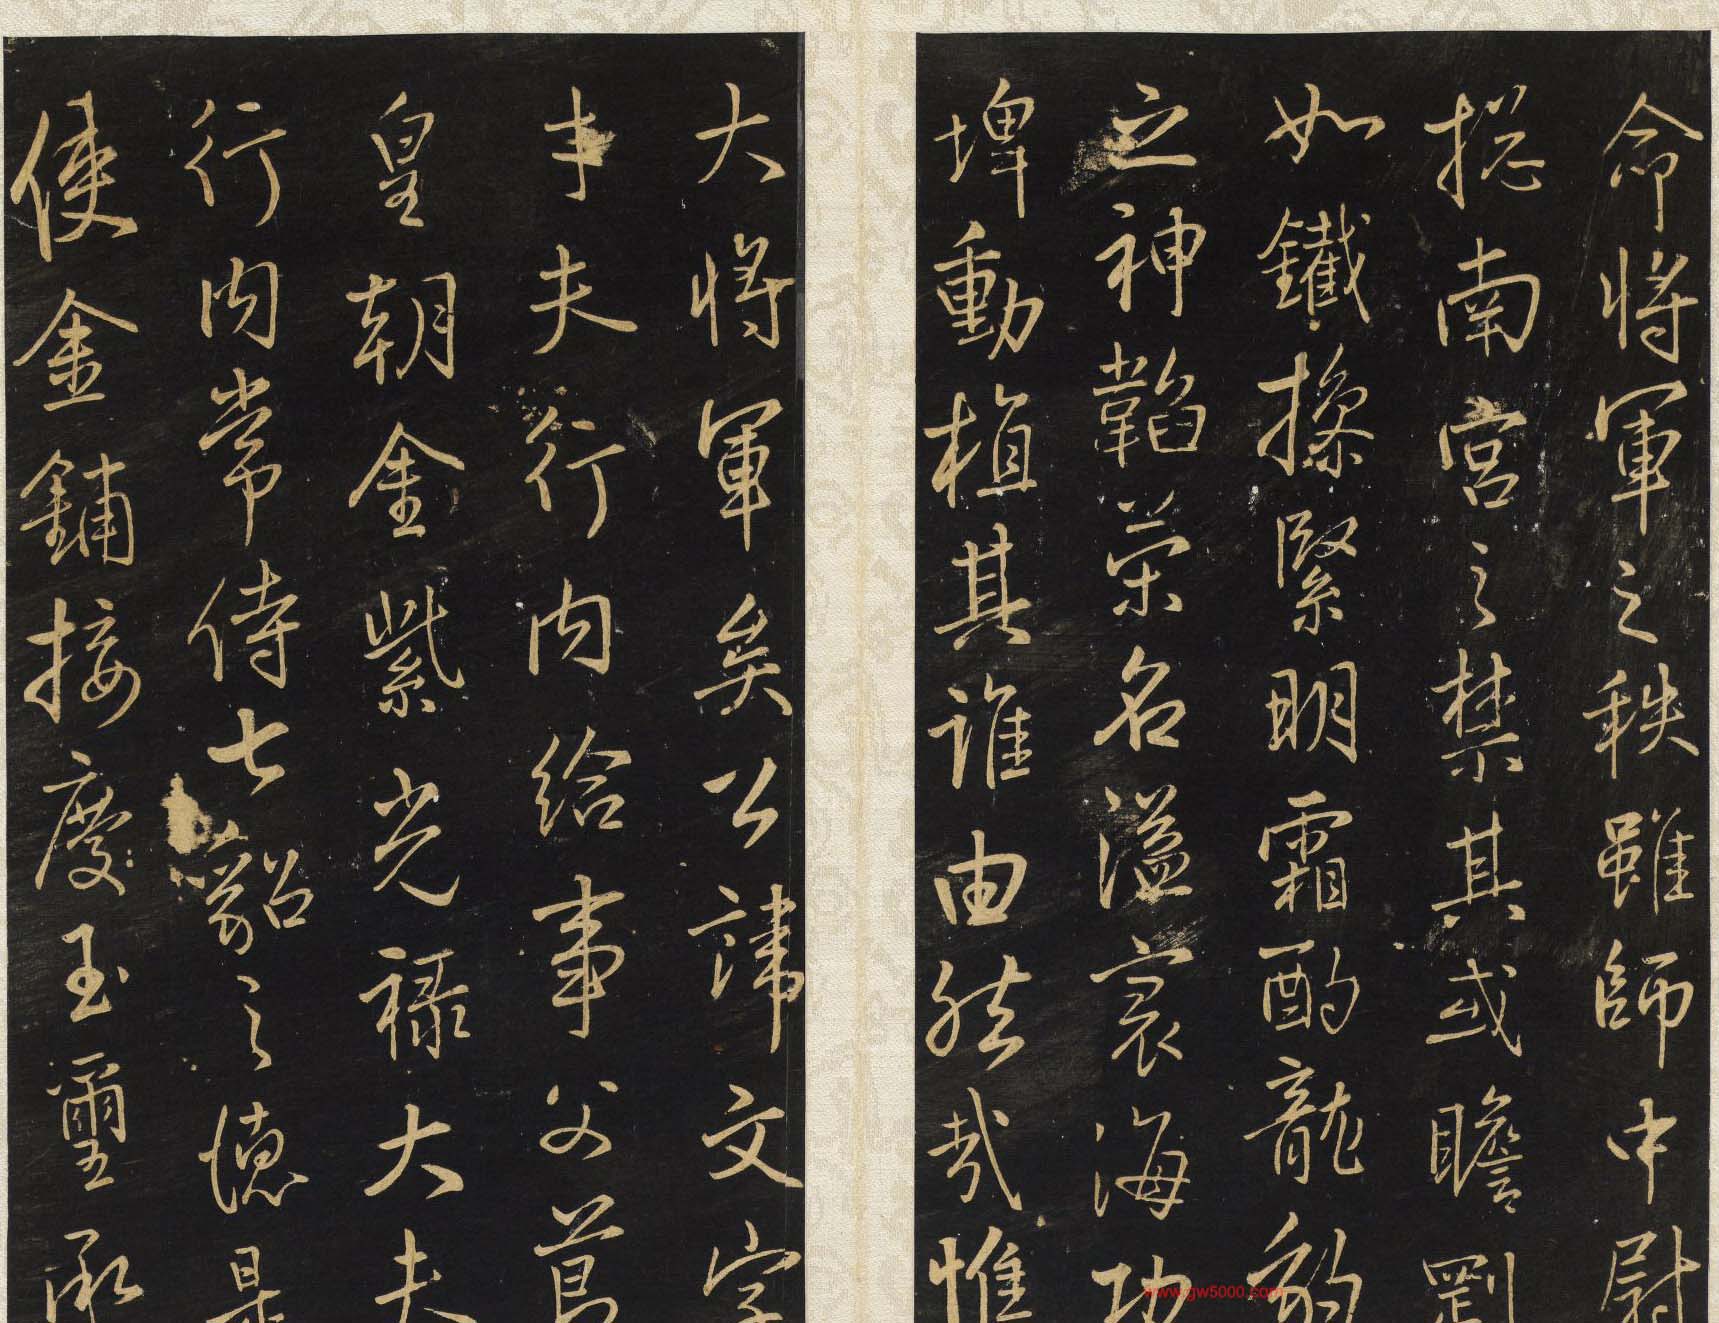 命將軍之秩雖師中尉
揔南宮之禁其或瞻剛
如鐵操緊明霜酌龍豹
之神韜榮名溢寰海功
埤動植其誰由然哉惟
大將軍矣公諱文字
夫行內給事父
皇朝金紫光祿大夫
行內常侍七貂之德是
使金鋪接慶玉璽承
www.gw5000.com